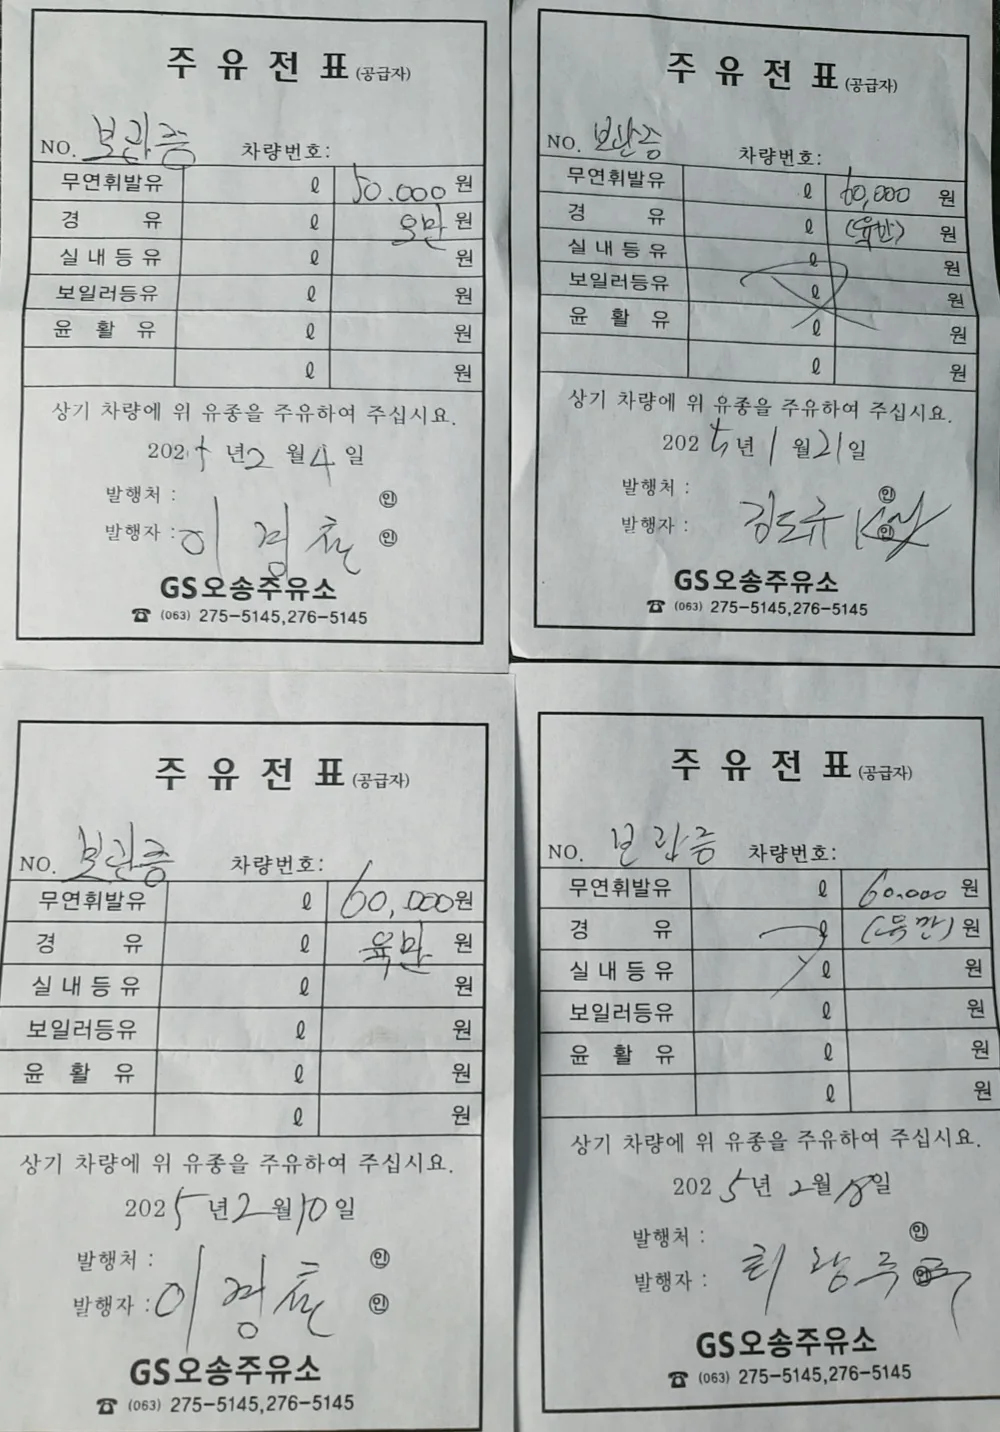 주유전표(공급자)
NO. 보관증 차량번호:
무연휘발유 ℓ 50.000원
경 유 ℓ 오만 원
실내등유 ℓ 원
보일러등유 ℓ 원
윤 활 유 ℓ 원
ℓ 원
상기 차량에 위 유종을 주유하여 주십시요.
2025년 2월 4일
발행처 : ㊞
발행자 : 이경 ㊞
GS오송주유소
☎ (063) 275-5145,276-5145
주유전표(공급자)
NO. 보관증 차량번호:
무연휘발유 ℓ 60,000 원
경 유 ℓ (육만) 원
실내등유 ℓ 원
보일러등유 ℓ 원
윤 활 유 ℓ 원
ℓ 원
상기 차량에 위 유종을 주유하여 주십시요.
2025년 1월 21일
발행처 : ㊞
발행자 : ㊞
GS오송주유소
☎ (063) 275-5145,276-5145
주유전표(공급자)
NO. 보관증 차량번호:
무연휘발유 ℓ 60,000원
경 유 ℓ 육만 원
실내등유 ℓ 원
보일러등유 ℓ 원
윤 활 유 ℓ 원
ℓ 원
상기 차량에 위 유종을 주유하여 주십시요.
2025년 2월 10일
발행처 : ㊞
발행자 : 이경 ㊞
GS오송주유소
☎ (063) 275-5145,276-5145
주유전표(공급자)
NO. 보관증 차량번호:
무연휘발유 ℓ 60.000 원
경 유 ℓ (육만) 원
실내등유 ℓ 원
보일러등유 ℓ 원
윤 활 유 ℓ 원
ℓ 원
상기 차량에 위 유종을 주유하여 주십시요.
2025년 2월 일
발행처 : ㊞
발행자 : ㊞
GS오송주유소
☎ (063) 275-5145,276-5145